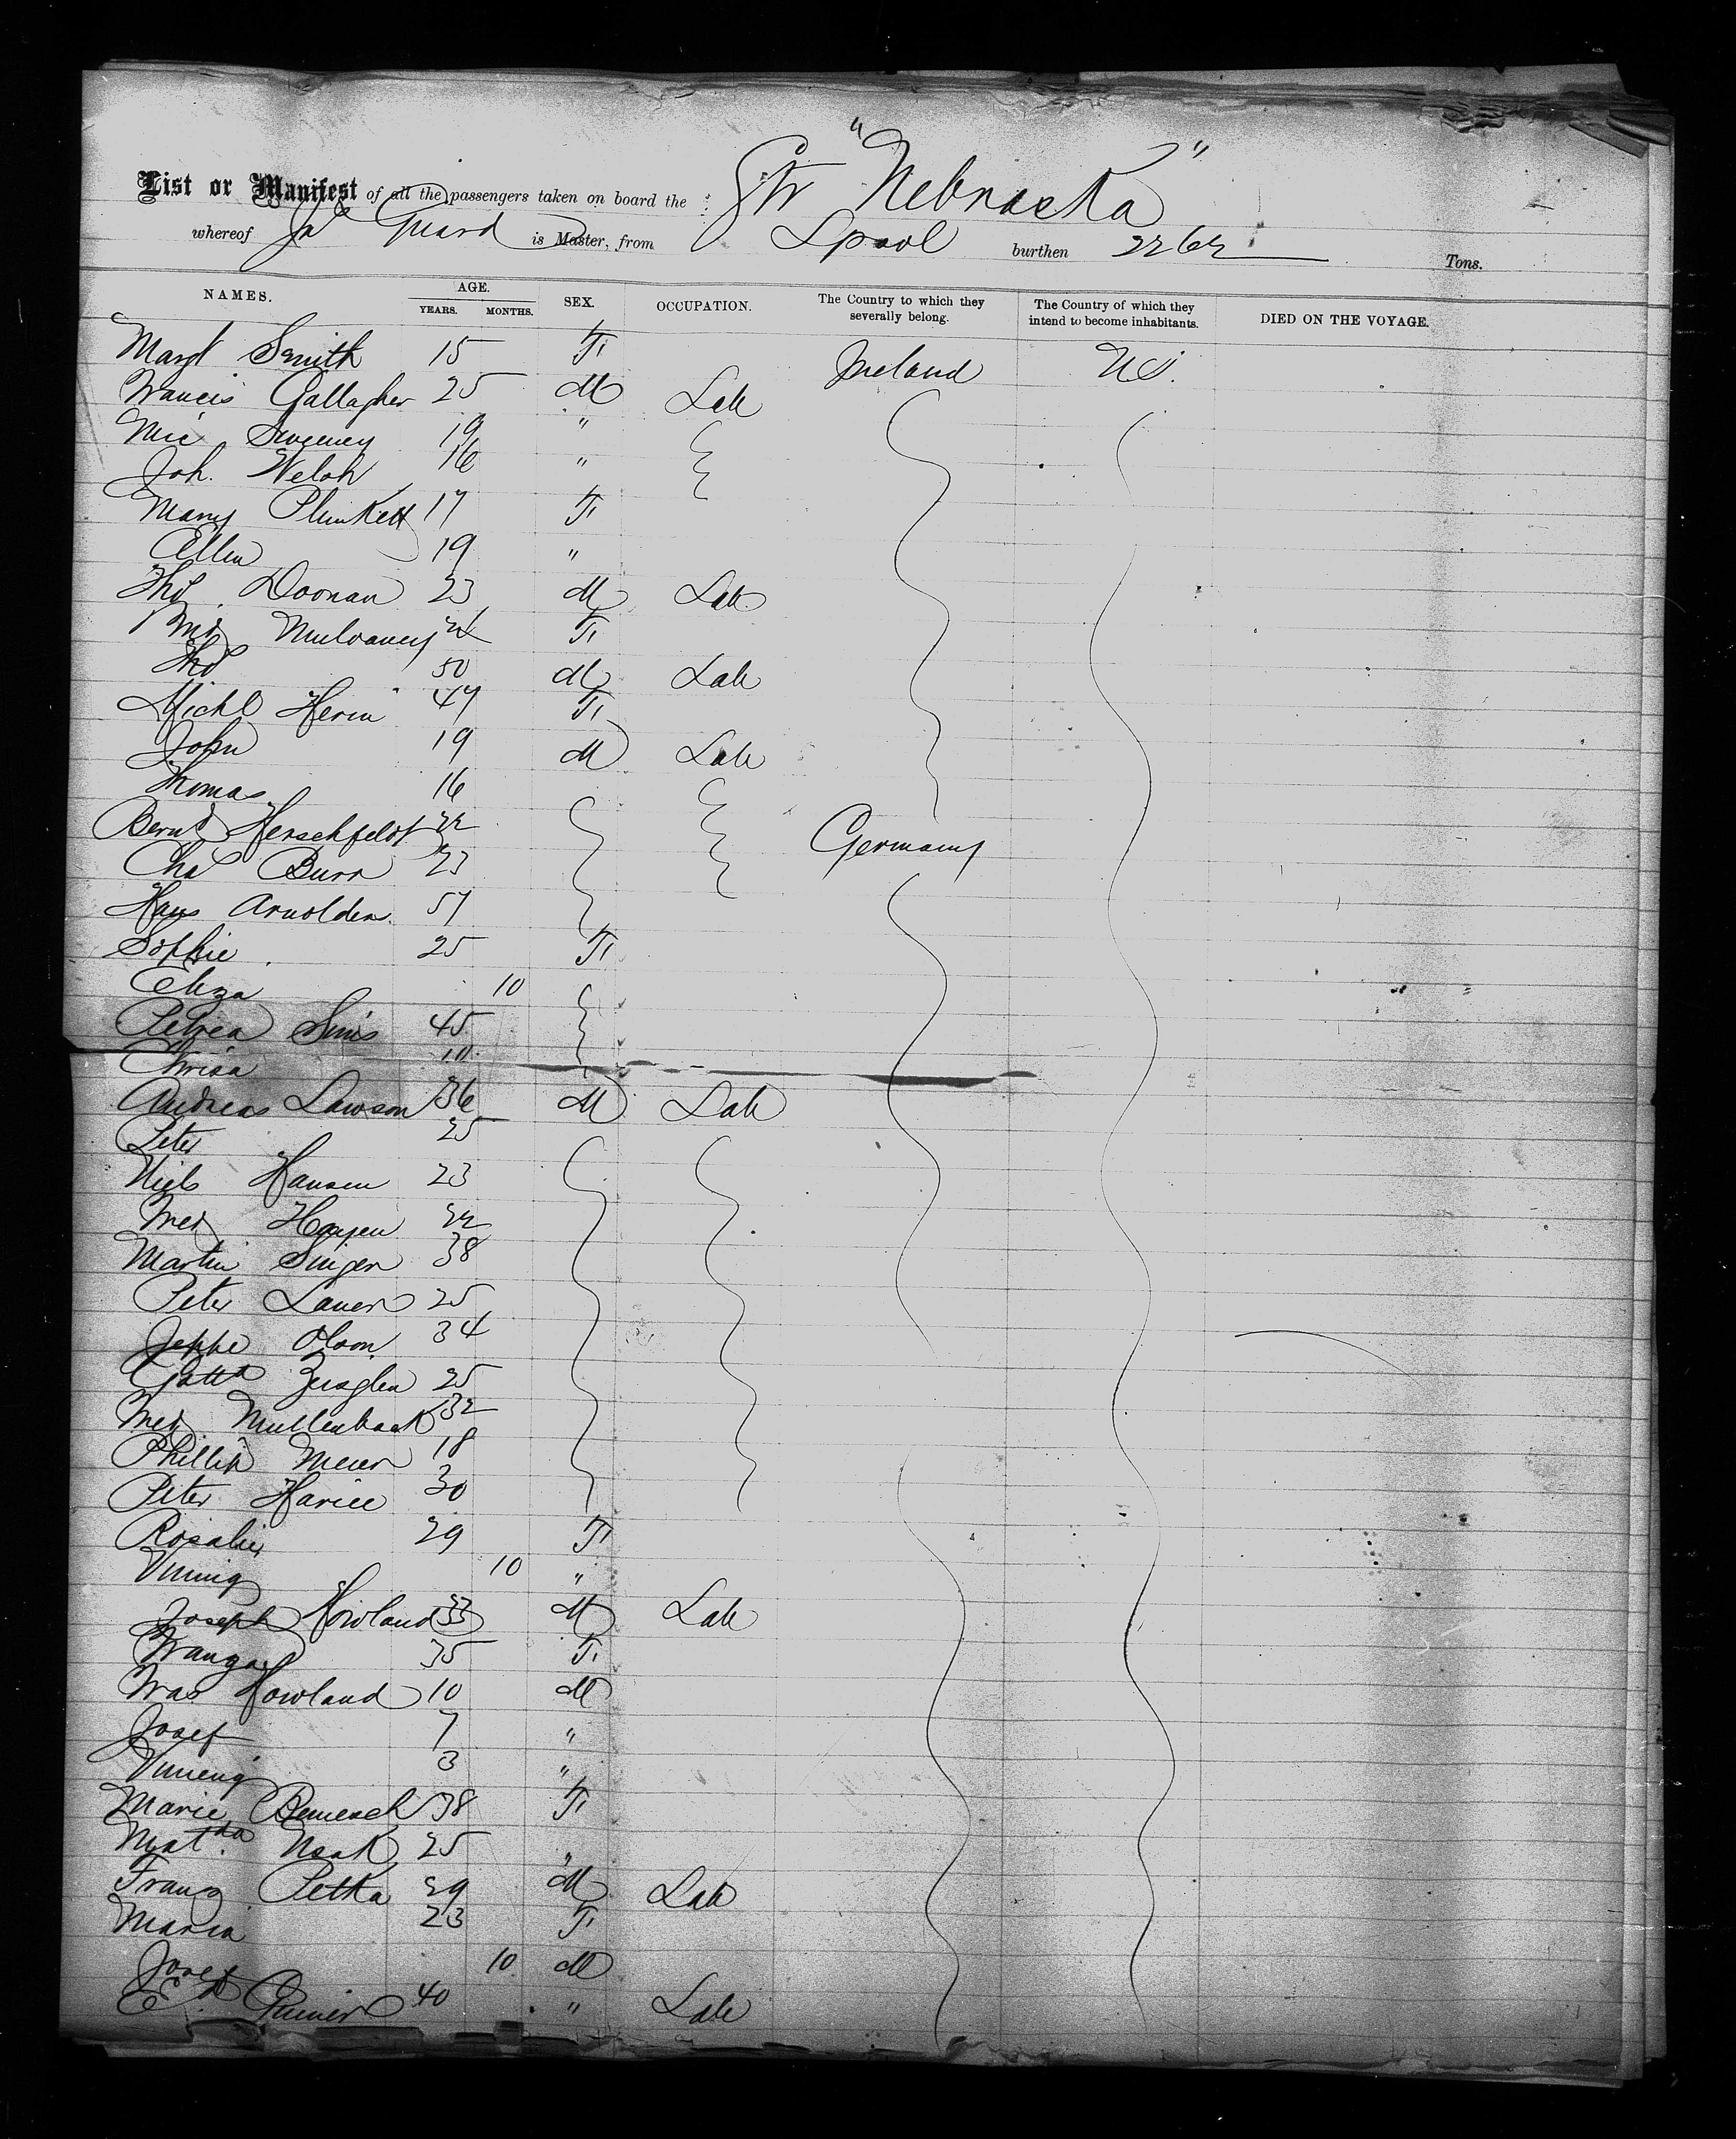 List or Manifest of all the passengers taken on board the Str "Nebraska"
whereof Jas Guard is Master, from Lpool burthen 2262 Tons.
NAMES. AGE. YEARS. MONTHS. SEX. OCCUPATION. The Country to which they severally belong. The Country of which they intend to become inhabitants. DIED ON THE VOYAGE.
Margt Smith 15 F Ireland US.
Francis Gallagher 25 M Lab
Mic Sweeney 19 "
Joh. Welsh 16 "
Mary Plunkett 17 F
Ellen 19 "
Thos Doonan 23 M Lab
Mulvaney 24 F
Thos 50 M Lab
Michl Herin 47 F
John 19 M Lab
Thomas 16
Bernd Herschfeldt 22 Germany
Chas Burr 23
Hans Arnolden. 57
Sophie 25 F
Eliza 10
Petrea Sims 45
Chrisa 10
Andreas Lawson 36 M Lab
Peter 25
Niels Hansen 23
Fred Hansen 22
Martin Singer 38
Peter Lauer 25
Jeppe Olson 34
Gottd 25
Fred Mullenbach 32
Phillip Meier 18
Peter Havice 30
Rosalie 29 F
10 "
Joseph Howland 33 M Lab
35 F
Fras Howland 10 M
Josef 7 "
3 "
Marie 38 F
Matda Noak 25 "
Franz Petka 29 M Lab
Maria 23 F
Josef 10 M
40 " Lab